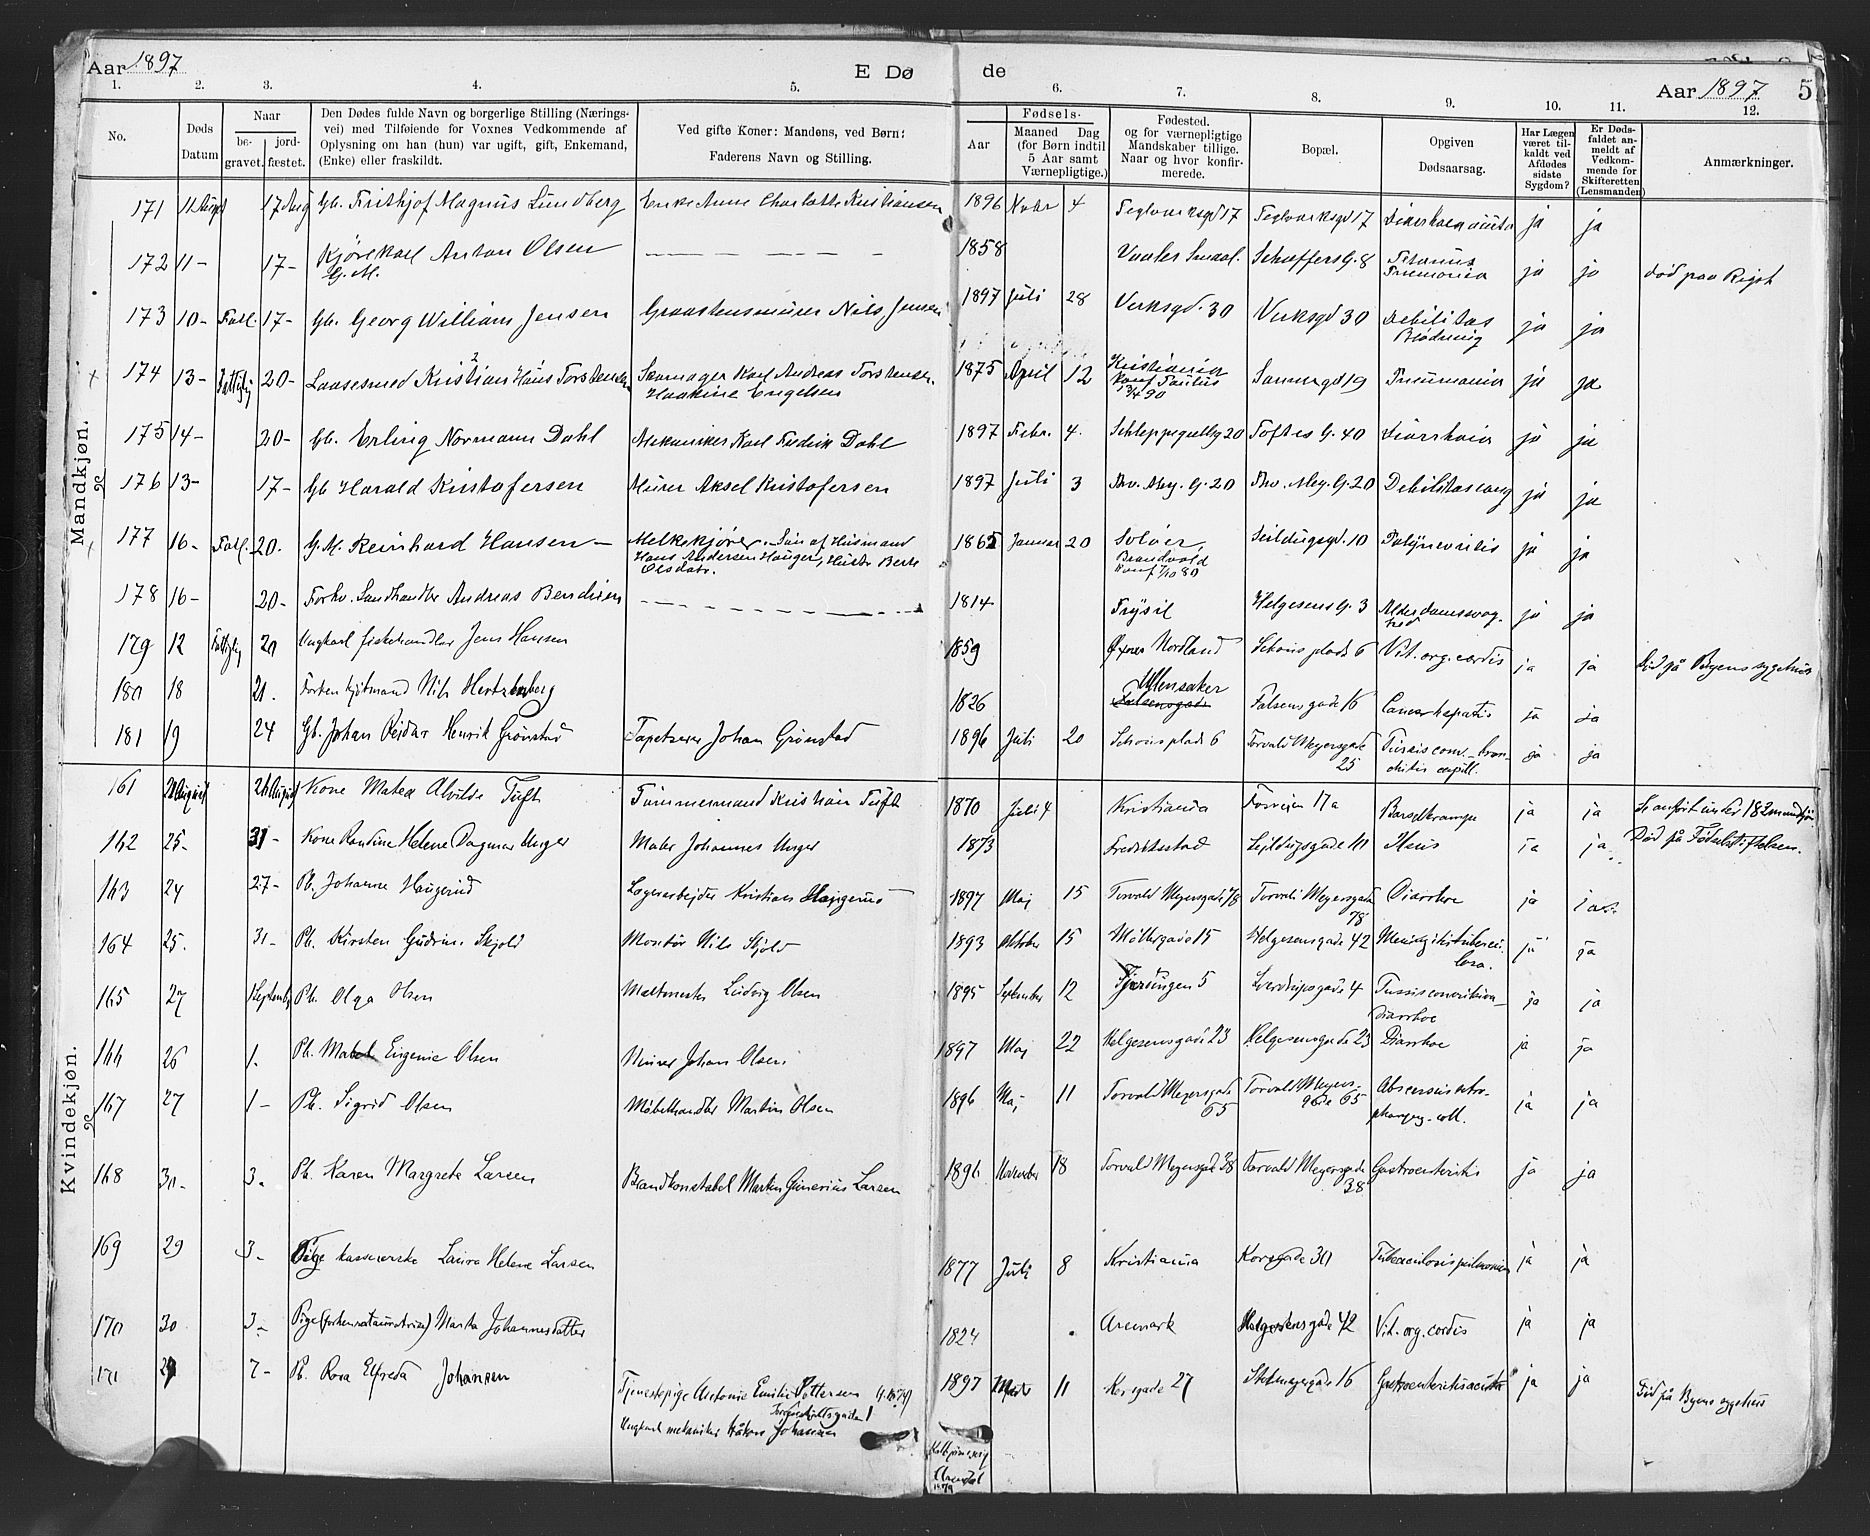 Aar 1897 E Dø de Aar 1897 5
1. 2. 3. 4. 5. 6. 7. 8. 9. 10. 11. 12.
No. Døds Datum Naar be- gravet. jord- fæstet. Den Dødes fulde Navn og borgerlige Stilling (Nærings- vei) med Tilføiende for Voxnes Vedkommende af Oplysning om han (hun) var ugift, gift, Enkemand, (Enke) eller fraskildt. Ved gifte Koner: Mandens, ved Børn: Faderens Navn og Stilling. Fødsels- Aar Maaned Dag (for Børn indtil 5 Aar samt Værnepligtige.) Fødested. og for værnepligtige Mandskaber tillige. Naar og hvor konfir- merede. Bopæl. Opgiven Dødsaarsag. Har Lægen været til- kaldt ved Afdødes sidste Sygdom? Er Døds- faldet an- meldt af Vedkom- mende for Skifteretten (Lensmanden) Anmærkninger.
Mandkjøn.
171 11 August 17 Aug Gb. Frithjof Magnus Lundberg Enke Anne Charlotte Kristiansen 1896 Novbr 4 Teglverksgd 17 Teglverksgd 17 ja ja
172 11 - 17 - Kjørekarl Anton Olsen 1858 Schæffersg. 8 Tetanus ja ja død paa Rigsh
G. M. Pneumonia
173 10 - Fall. 17 - Gb. Georg William Jensen Graastensmurer Nils Jensen 1897 Juli 28 Verksgd. 30 Verksgd 30 Debilitas ja ja
Blødning
174 13 - Fattiglig 20 - Laasesmed Kristian Hans Torstensen Skomager Karl Andreas Torstensen 1875 April 12 Kristiania Sannergd 19 Pneumonia ja ja
Haakine Engelsen konf. Paulus
175 14 - 20 - Gb. Erling Normann Dahl Mekaniker Karl Fredrik Dahl 1897 Febr. 4. Schleppegrellsg 20 Toftes G. 40 Diarrhoia ja ja
176 13 - 17 - Gb Harald Kristofersen Murer Aksel Kristofersen 1897 Juli 3 Thv. Mey. G. 20 Thv. Mey. G. 20 Debilitas cong ja ja
177 16 - Fall. 20. G. M. Reinhard Hansen - Melkekjører. - Søn af Husmand 1865 Januar 20 Solør Seildugsgd. 10 Polynevritis ja ja
Hans Andersen Hauger, Hustr Berte Brandvold
Olsdatr. konf 7/10 80
178 16 - 20 - Forhv. Landhandler Andreas Bendixen 1814 Trysil Helgesens G. 3 Alderdomssvag- ja ja
hed
179 12 Fattiglig 20 Ungkarl fiskehandler Jens Hansen 1859 Nordland Schous plads 6 Vit. org. cordis ja ja Død på Byens sygehus
180 18 21. Nils Hertzberg 1826 Ullensaker Falsensgade 16 Cancer hepatis ja ja
Falsensgade
181 19 24 Gb. Johan Reidar Henrik Grønstad Tapetserer Johan Grønstad 1896 Juli 20 Schous plads 6 Torvald Meyersgade Tussis conv. - bron- ja ja
25 chitis capill.
Kvindekjøn.
161 20 August 26 August Kone Matea Alvilde Tuft Tømmermand Kristian Tuft 1870 Juli 4 Kristiania Fossveien 17a Barselkrampe ja ja Se anført under 182 mandkjøn
162 25 - 31 - Kone Randine Helene Dagmar Unger Maler Johannes Unger 1873 Fredrikstad Ileus ja ja Død på Fødselsstiftelsen.
163 24 27 - Pb. Johanne Haugerud Lagerarbejder Kristian Haugerud 1897 Maj 15 Torvald Meyersgade 78 Torvald Meyersgade Diarrhoe ja ja
78
164 25. 31 - Pb. Kirsten Gudrun Skjold Montør Nils Skjold 1893 Oktober 15 Møllergade 15 Helgesensgade 42 Meningitis tubercu- ja ja
losa.
165 27 1 September Pb. Olga Olsen Maltmester Ludvig Olsen 1895 September 12 Tjerslingen 5 Sverdrupsgade 4 Tussis convulsiva - ja ja
Diarrhoe
166 26 1. Pb. Mabel Eugenie Olsen Murer Johan Olsen 1897 Maj 22 Helgesensgade 23 Helgesensgade 23 Diarrhoe ja ja
167 27 1 - Pb. Sigrid Olsen Møbelhandler Martin Olsen 1896 Maj 11 Torvald Meyersgade Torvald Meyers- Abscessus retro- ja ja
65 gade 65 pharyng. coll.
168 30 - 3. Pb. Karen Margrete Larsen Brandkonstabel Martin Gunerius Larsen 1896 November 18 Torvald Meyersgade 38 Torvald Meyersgade Gastroenteritis ja ja
38
169 29 3 - Pige kassererske Laura Helene Larsen 1877 Juli 8 Kristiania Korsgade 30 Tuberculosis pulmonum ja ja
170 30 3 - Pige (forhen restauratrice) Marta Johannesdatter 1824 Aremark Helgesensgade 42 Vit. org. cordis ja ja
171 29 7 - Pb. Rosa Elfreda Johansen Tjenestepige Antonie Emilie Pettersen 1897 11 Korsgade 27 Stolmagergade 16 Gastroenteritis acuta ja ja Død på Byens sygehus
Ungkarl mekaniker Håkon Johansen
Arendal